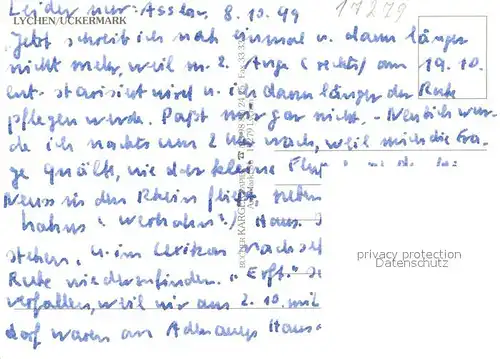 Leider nur: Asslar, 8.10.99
17279
LYCHEN/UCKERMARK
Jetzt schreib ich noch einmal u. dann länger
nicht mehr, weil m. 2. Auge (rechts) am 19.10.
ent-starisiert wird u. ich dann länger der Ruhe
pflegen werde. Papt mir gar nicht. - Neulich wur-
de ich nachts um 2 Uhr wach, weil mich die Fra-
ge quälte, wie der kleine
Neuss in den Rhein fließt, neben
hahns (Werhahn?) Haus
stehen, u. im Lexikon nachse
Ruhe wiederzufinden. "Erft"
verfallen, weil wir am 2.10. mit
dorf waren an Adenauers Haus
privacy protection
Datenschutz